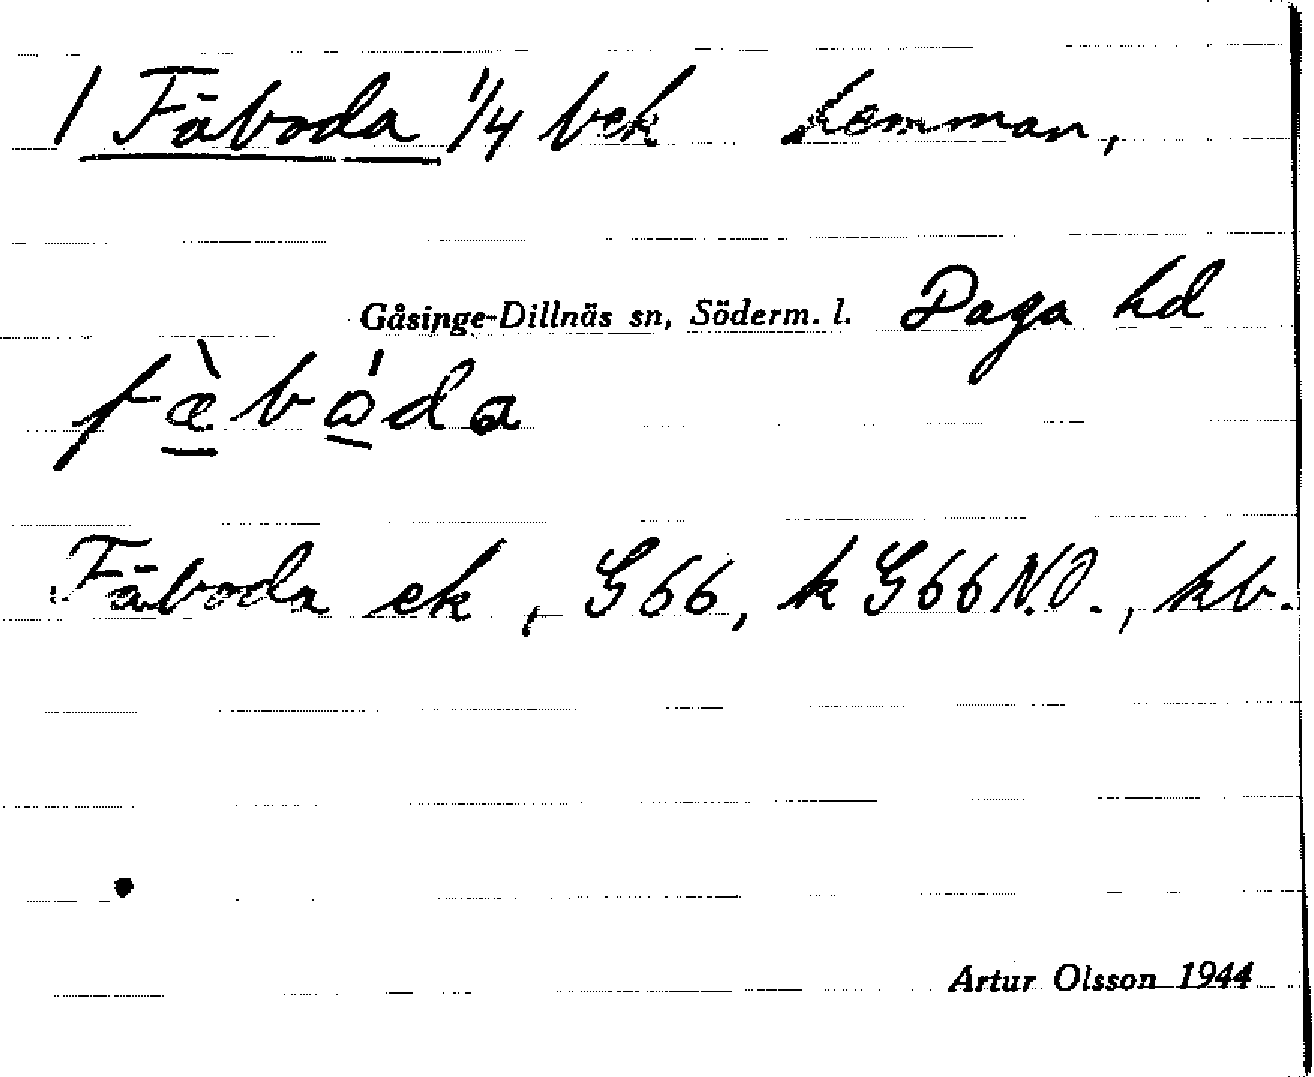 1 Fäboda 1/4 bek hemman,
Gåsinge-Dillnäs sn, Söderm. l. Daga hd
fæ̀bɷ́da
Fäboda ek, G66, k G66 N.O., kb.
Artur Olsson 1944